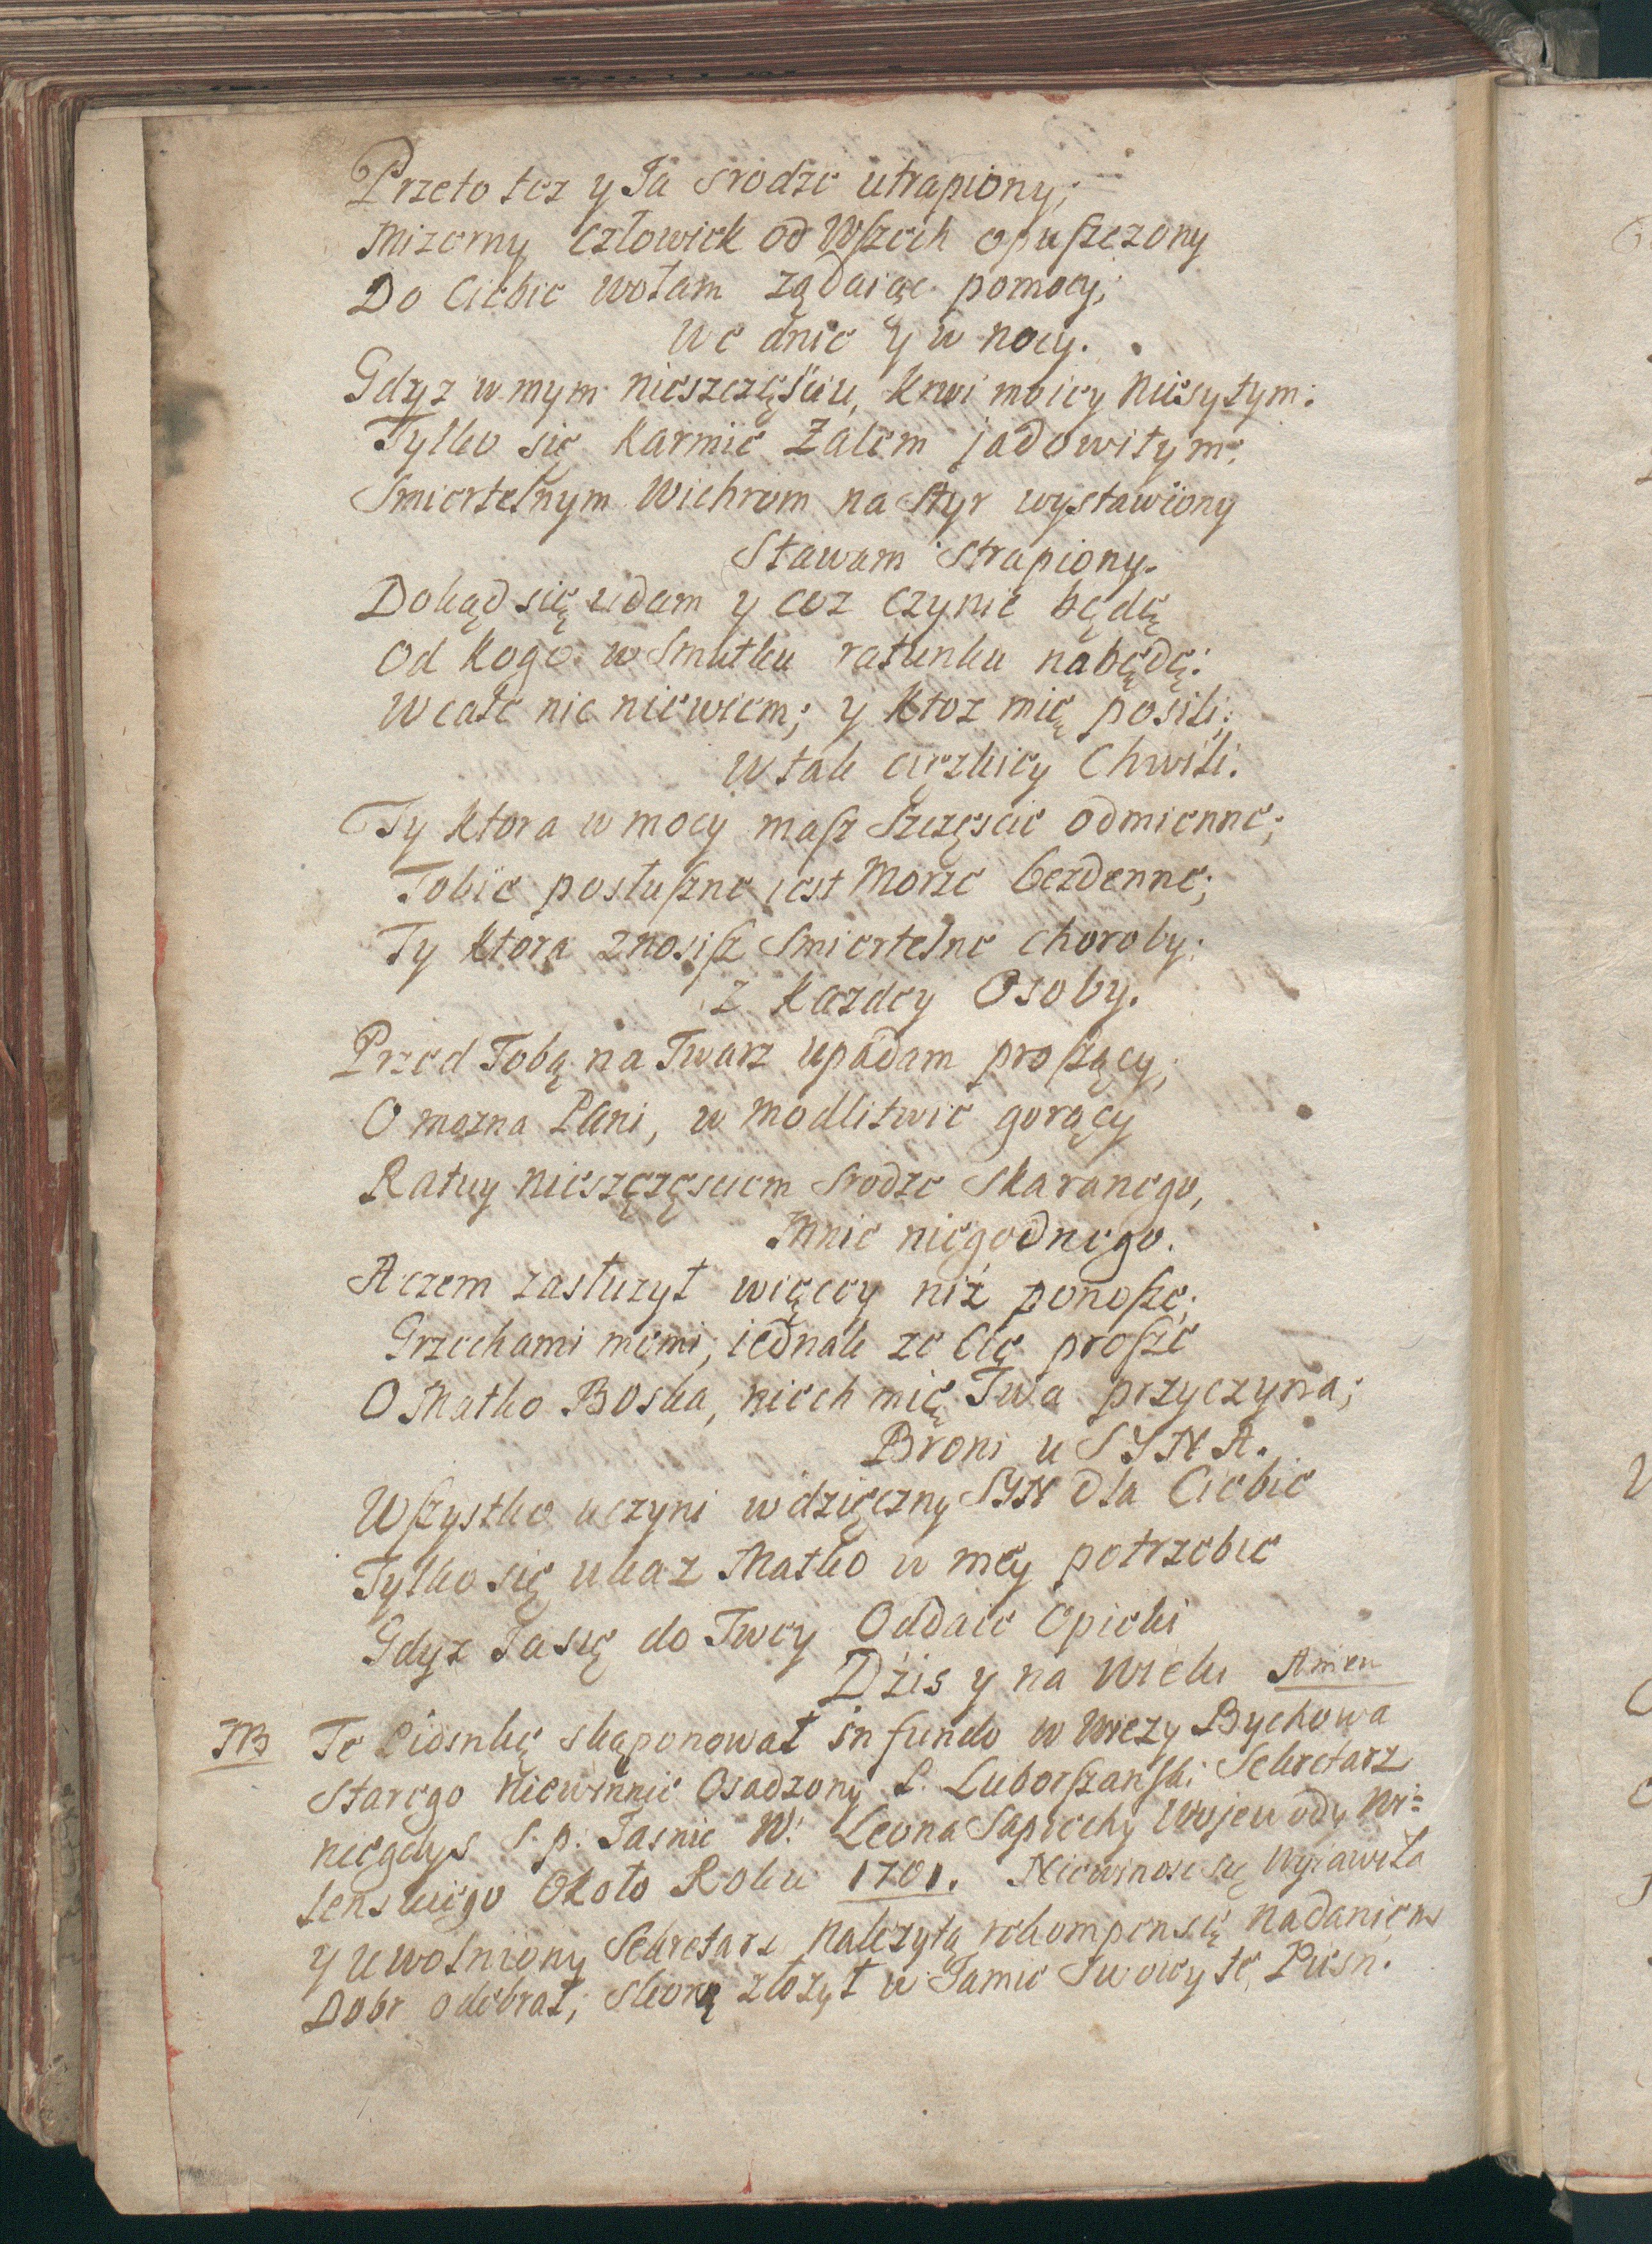 Przeto tez y Ja srodze utrapiony;
Mizerny człowiek od Wszech opuszczony
Do Ciebie wołam żądaiąc pomocy,
We dnie y w nocy.
Gdyz w mym nieszczęściu, krwi moiey niesytym:
Tylko się karmię Zalem jadowitym:
Smiertelnym Wichrom na Styr wystawiony
Stawam Strapiony.
Dokąd się udam y coz czynić będę
Od kogo w Smutku ratunku nabędę:
Wcale nic niewiem; y ktoz mię posili:
W tak cięzkiey Chwili.
Ty ktora w mocy masz Szczęscie odmienne;
Tobie posłuszne iest Morze bezdenne;
Ty ktora znosisz Smiertelne choroby:
z kazdey Osoby.
Przed Tobą na Twarz upadam proszący,
O mozna Pani, w modlitwie gorący
Ratuy nieszczęsciem Srodze Skaranego,
Mnie niegodnego.
Aczem zasłuzył więcey niż ponoszę;
Grzechami memi; iednak ze Cię proszę
O Matko Boska, niech mię Twa przyczyna;
Broni u SYNA.
Wszystko uczyni wdzięczny SYN dla Ciebie
Tylko się ukaz Matko w mey potrzebie
Gdyz Ja się do Twey Oddaię Opieki
Dziś y na Wieki Amen
NB Te Piosnkę skąponował in fundo w Wiezy Bychowa
Starego Niewinnie Osadzony P. Luborszanski Sekretarz
niegdys S. p. Jasnie W: Leona Sapiechy Wojewody Wi=
lenskiego Około Roku 1701. Niewinosc się Wyiawiła
y uwolniony Sekretarz Nalezytą rekompensę nadaniem
Dobr odebrał; Skorą złozył w Jamie Swoiey te Piesn.